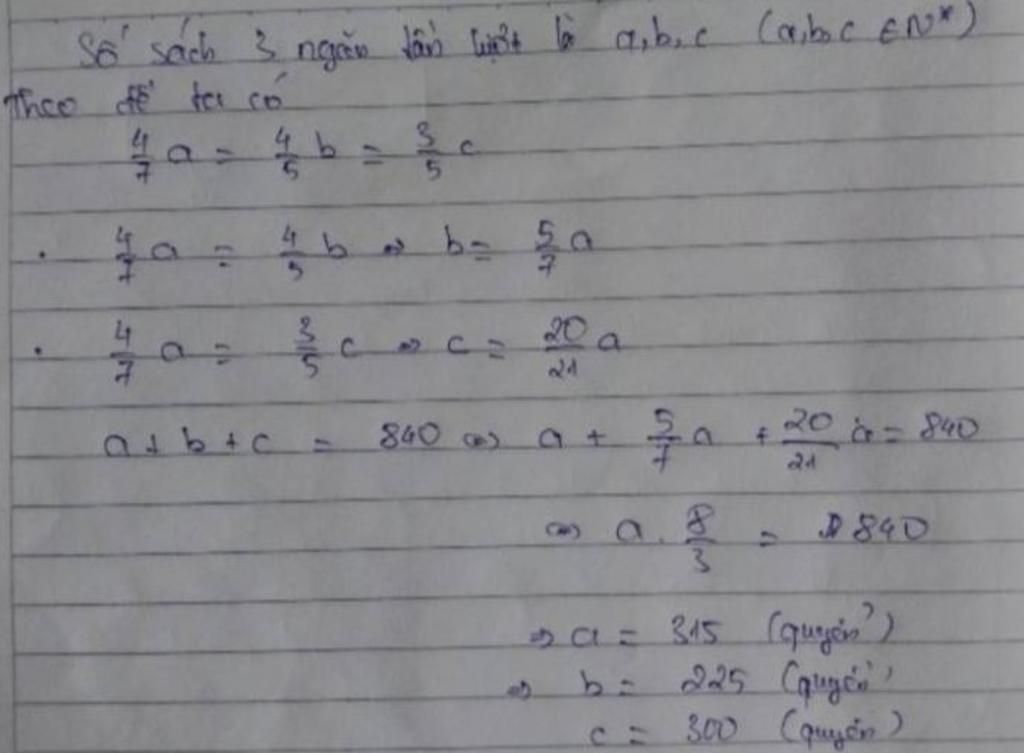 Số sách 3 ngăn lần lượt là a, b, c (a,b,c ∈ N*)
Theo đề ta có
4/7 a = 4/5 b = 3/5 c
· 4/7 a = 4/5 b ⇒ b = 5/7 a
· 4/7 a = 3/5 c ⇒ c = 20/21 a
a + b + c = 840 ⇔ a + 5/7 a + 20/21 a = 840
⇔ a . 8/3 = 840
⇒ a = 315 (quyển)
⇒ b = 225 (quyển)
c = 300 (quyển)